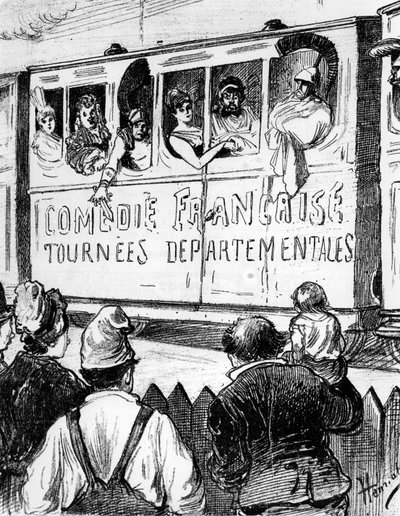 COMÉDIE FRANÇAISE
TOURNÉES DEPARTEMENTALES